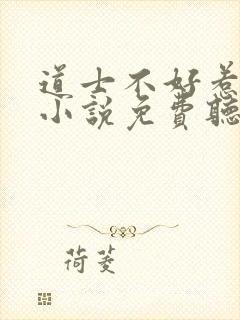 道士不好惹
小說免費聽
荷菱